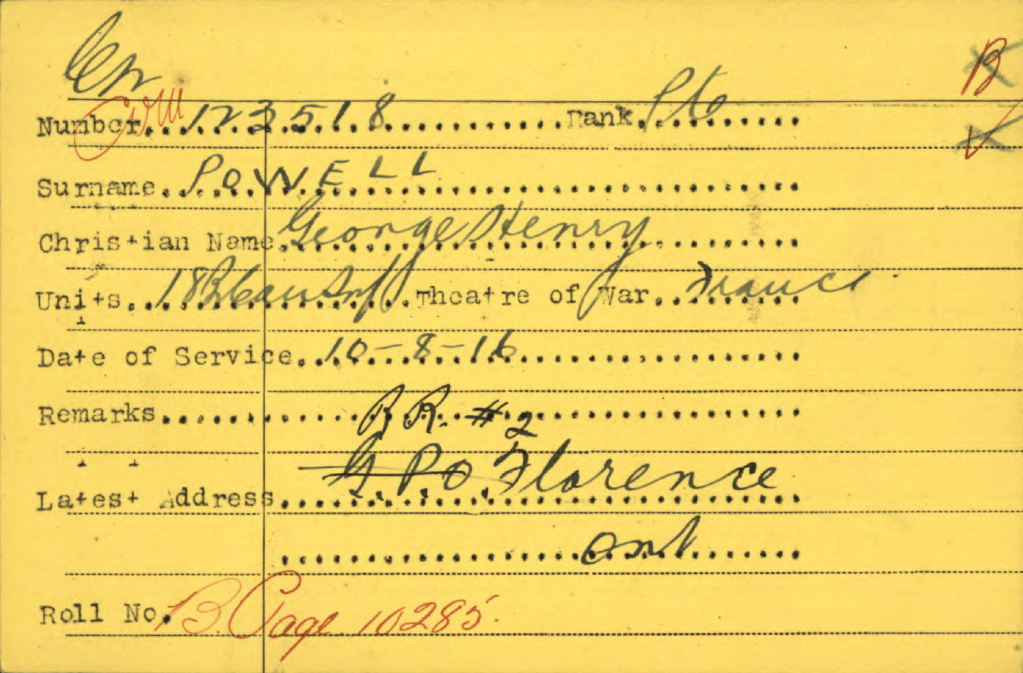 Cn B
Number 123518 Rank Pte
Surname POWELL
Christian Name George Henry
Units 18 Can Inf Theatre of War France
Date of Service 10-8-16
Remarks R R. #2
Latest Address G.P.O. Florence
Ont
Roll No. B. Page 10285.